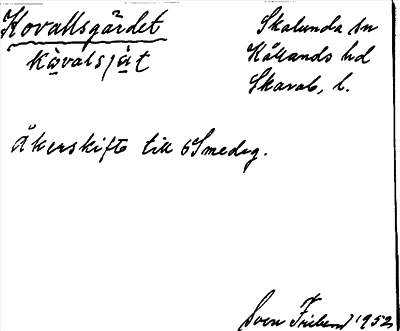 Kovallsgärdet
Skalunda sn
Kållands hd
Skarab. l.
Åkerskifte till 6 Smedsg.
Sven 1952